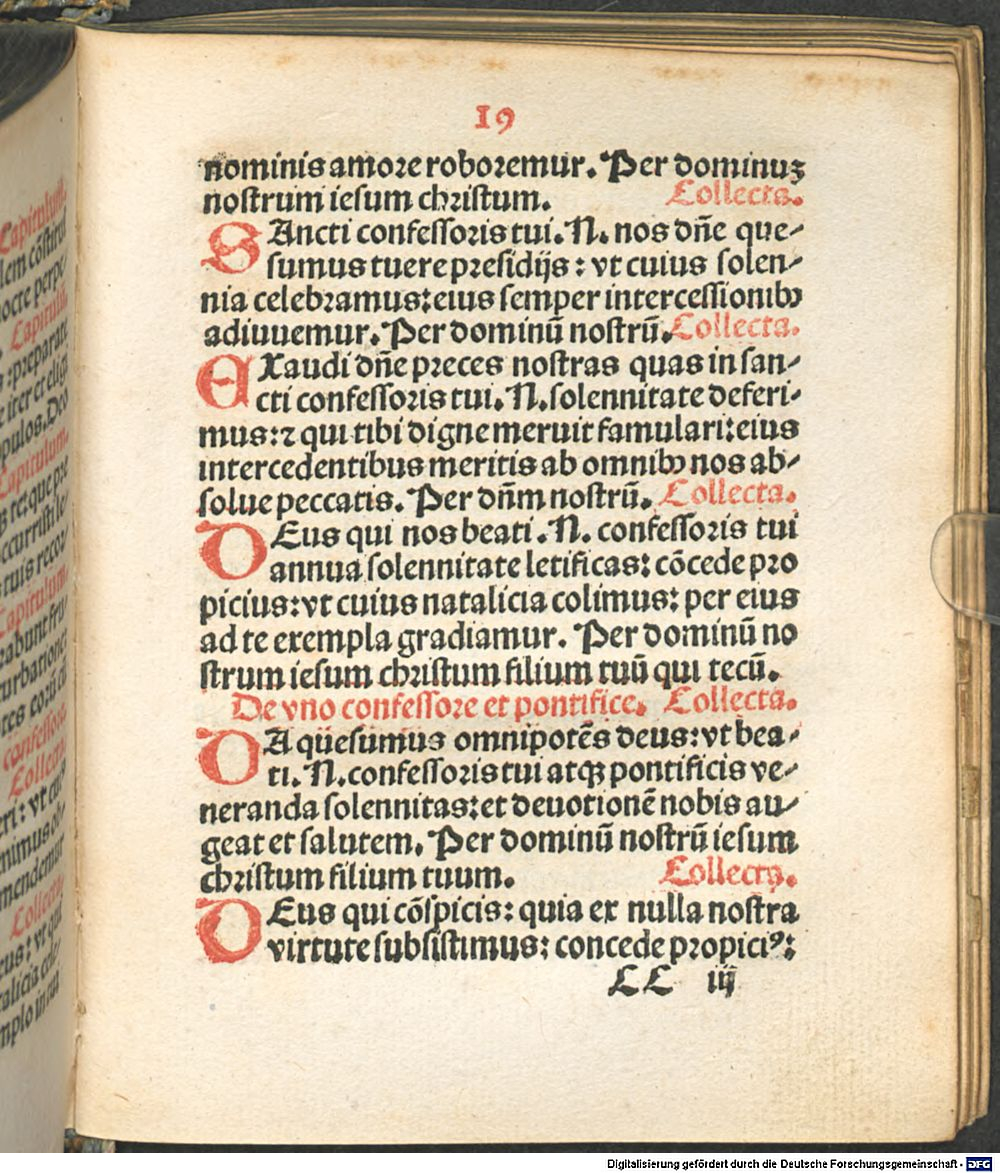 19
nominis amore roboremur. Per dominuʒ
nostrum iesum christum. Collecta.
SAncti confessoris tui. N. nos dñe que-
sumus tuere presidijs: vt cuius solen-
nia celebramus: eius semper intercessionibꝰ
adiuuemur. Per dominū nostrū. Collecta.
EXaudi dñe preces nostras quas in san-
cti confessoris tui. N. solennitate deferi-
mus: ⁊ qui tibi digne meruit famulari: eius
intercedentibus meritis ab omnibꝰ nos ab-
solue peccatis. Per dñm nostrū. Collecta.
DEus qui nos beati. N. confessoris tui
annua solennitate letificas: cōcede pro
picius: vt cuius natalicia colimus: per eius
ad te exempla gradiamur. Per dominū no
strum iesum christum filium tuū qui tecū.
De vno confessore et pontifice. Collecta.
DA quesumus omnipotēs deus: vt bea-
ti. N. confessoris tui atqꝫ pontificis ve-
neranda solennitas: et deuotionē nobis au-
geat et salutem. Per dominū nostrū iesum
christum filium tuum. Collecta.
DEus qui cōspicis: quia ex nulla nostra
virtute subsistimus: concede propiciꝰ:
LL iij
Capitulum.
Capitulū.
preparate
pulos. Deo
Capitulum.
ccurristi
tuis
Capitulum.
Collecta
mendemur
Collecta.
Digitalisierung gefördert durch die Deutsche Forschungsgemeinschaft - DFG